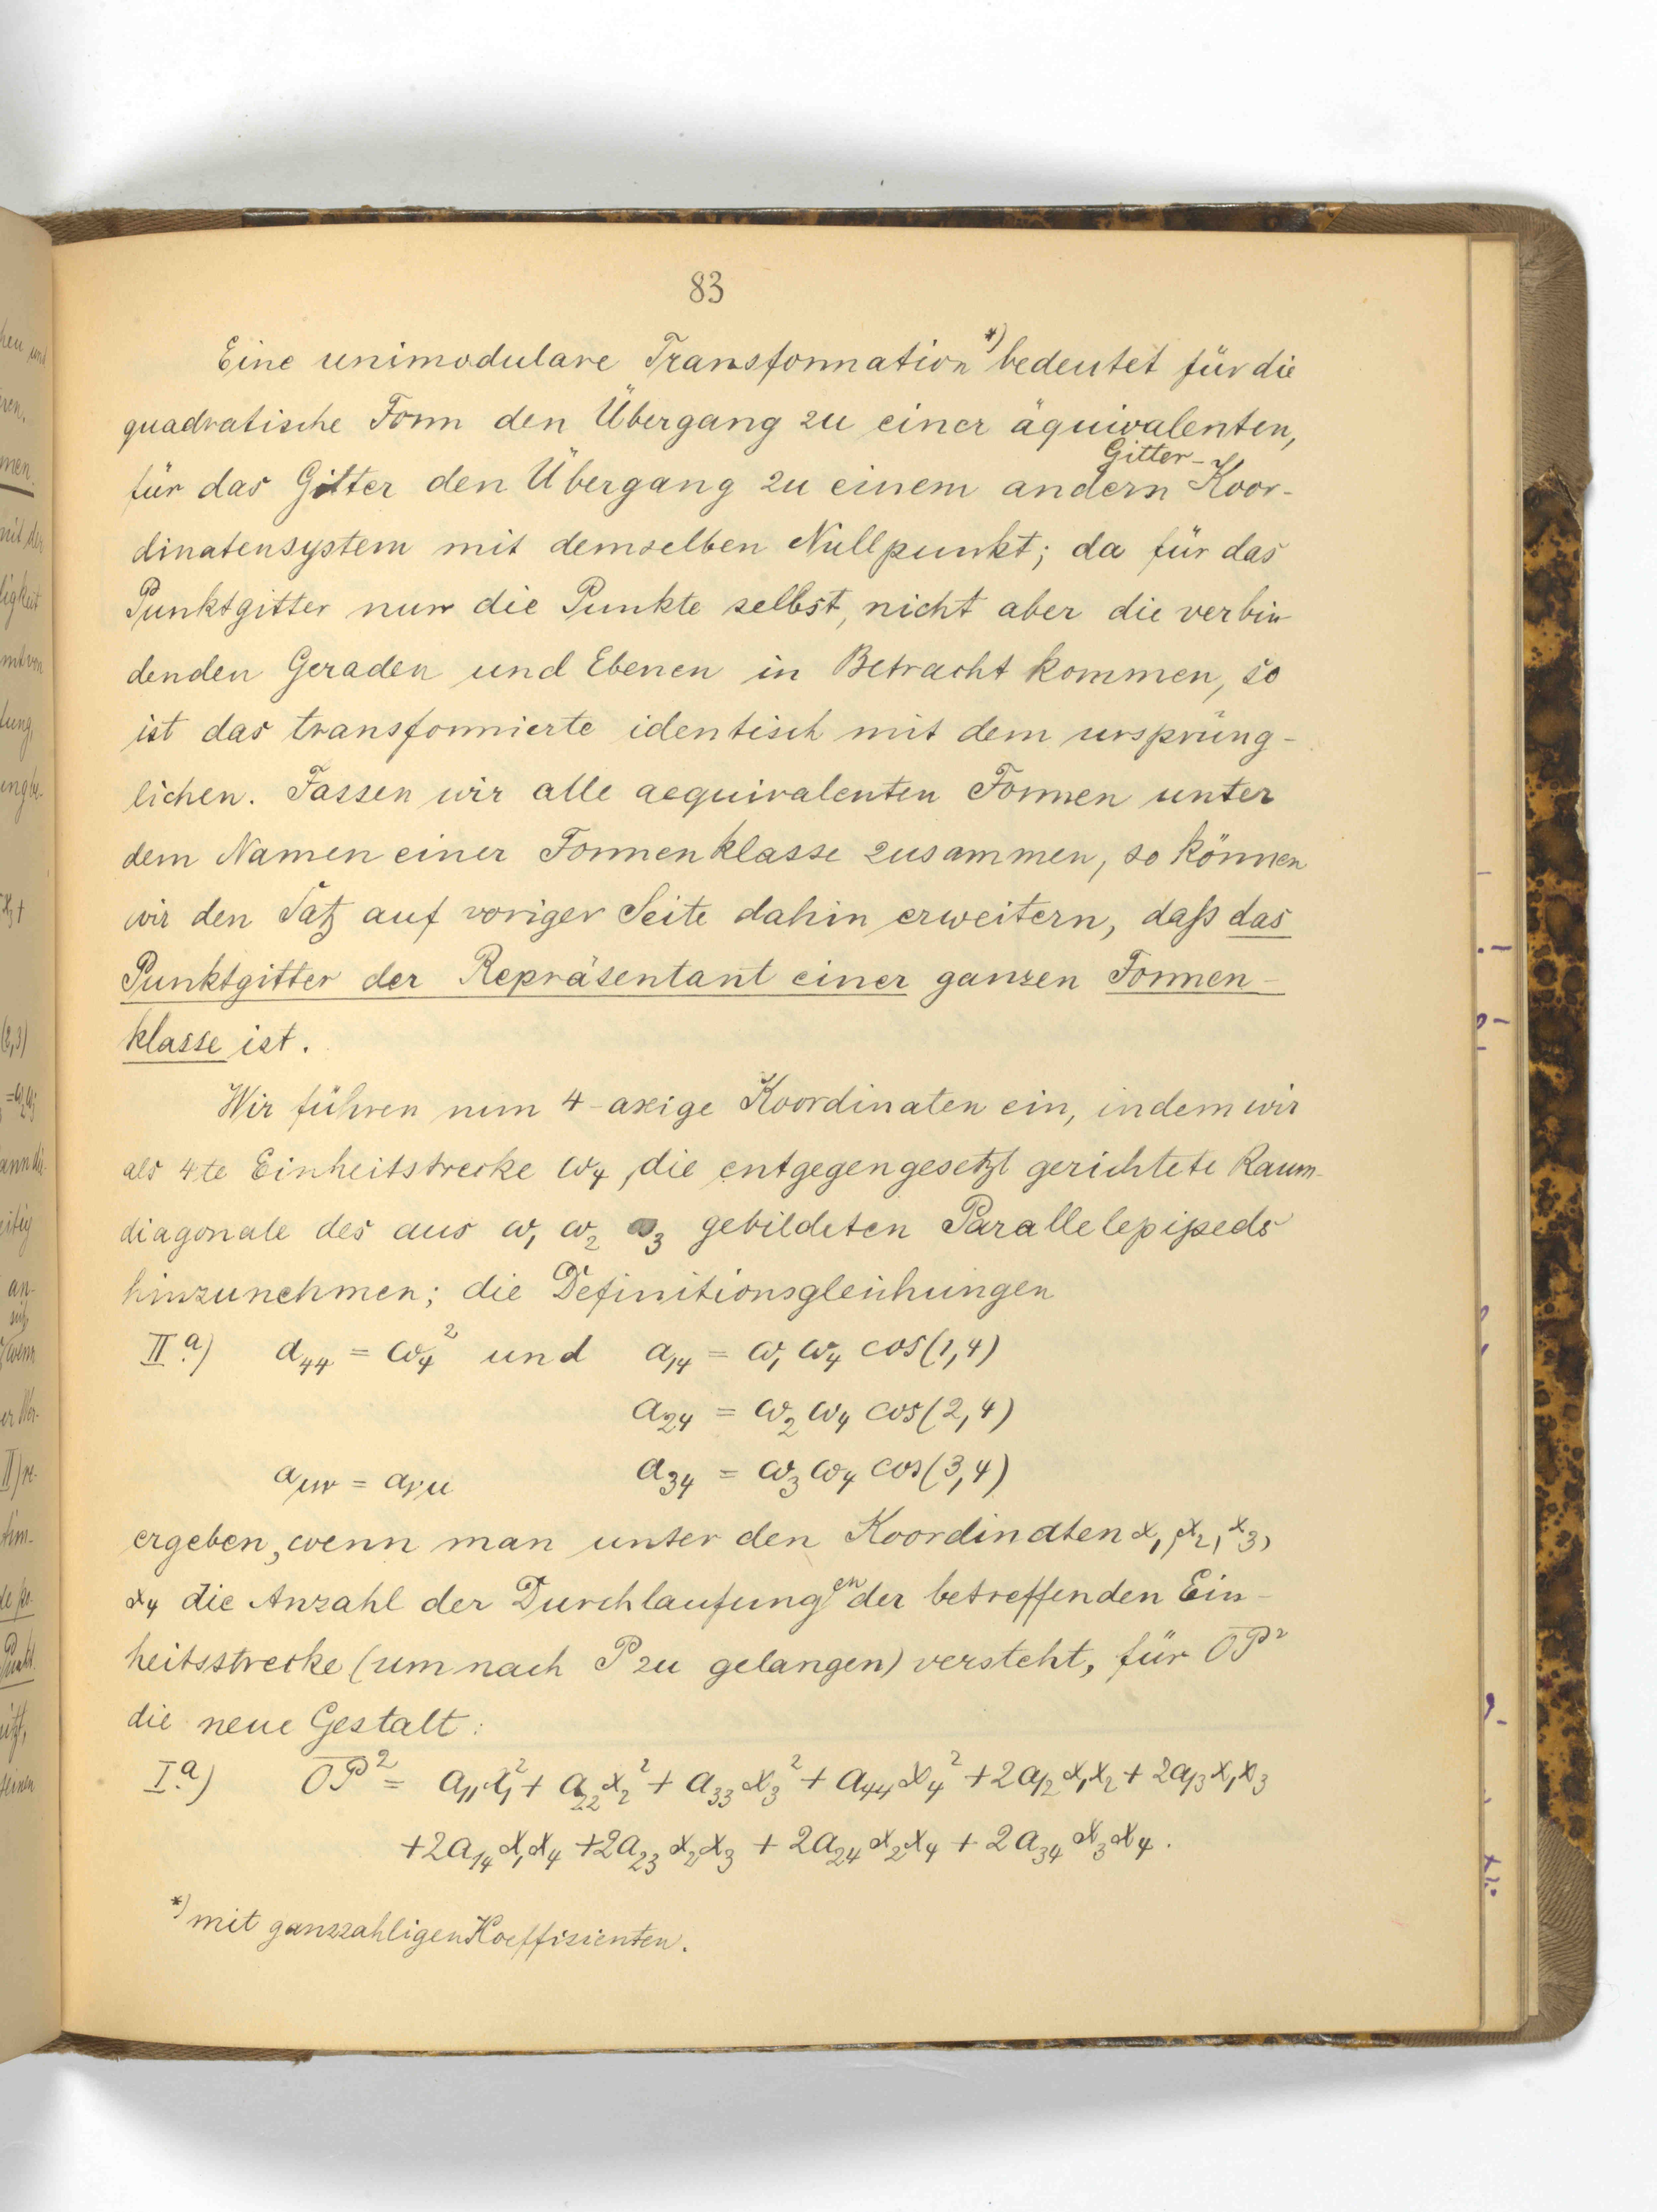 83
Eine unimodulare Transformation *) bedeutet für die
quadratische Form den Übergang zu einer äquivalenten,
für das Gitter den Übergang zu einem andern Gitter-Koor-
dinatensystem mit demselben Nullpunkt; da für das
Punktgitter nur die Punkte selbst, nicht aber die verbin-
denden Geraden und Ebenen in Betracht kommen, so
ist das transformierte identisch mit dem ursprüng-
lichen. Fassen wir alle aequivalenten Formen unter
dem Namen einer Formenklasse zusammen, so können
wir den Satz auf voriger Seite dahin erweitern, daß das
Punktgitter der Repräsentant einer ganzen Formen-
klasse ist.
Wir führen nun 4-axige Koordinaten ein, indem wir
als 4te Einheitstrecke ω₄, die entgegengesetzt gerichtete Raum-
diagonale des aus ω₁ ω₂ ω₃ gebildeten Parallelepipeds
hinzunehmen; die Definitionsgleichungen
II.a) a₄₄ = ω₄² und a₁₄ = ω₁ ω₄ cos(1,4)
a₂₄ = ω₂ ω₄ cos(2,4)
aμν = aνμ a₃₄ = ω₃ ω₄ cos(3,4)
ergeben, wenn man unter den Koordinaten x₁, x₂, x₃,
x₄ die Anzahl der Durchlaufungen der betreffenden Ein-
heitsstrecke (um nach P zu gelangen) versteht, für OP²
die neue Gestalt:
I.a) OP² = a₁₁x₁² + a₂₂x₂² + a₃₃x₃² + a₄₄x₄² + 2a₁₂x₁x₂ + 2a₁₃x₁x₃
+2a₁₄x₁x₄ +2a₂₃x₂x₃ + 2a₂₄x₂x₄ + 2a₃₄x₃x₄.
*) mit ganzzahligen Koeffizienten.